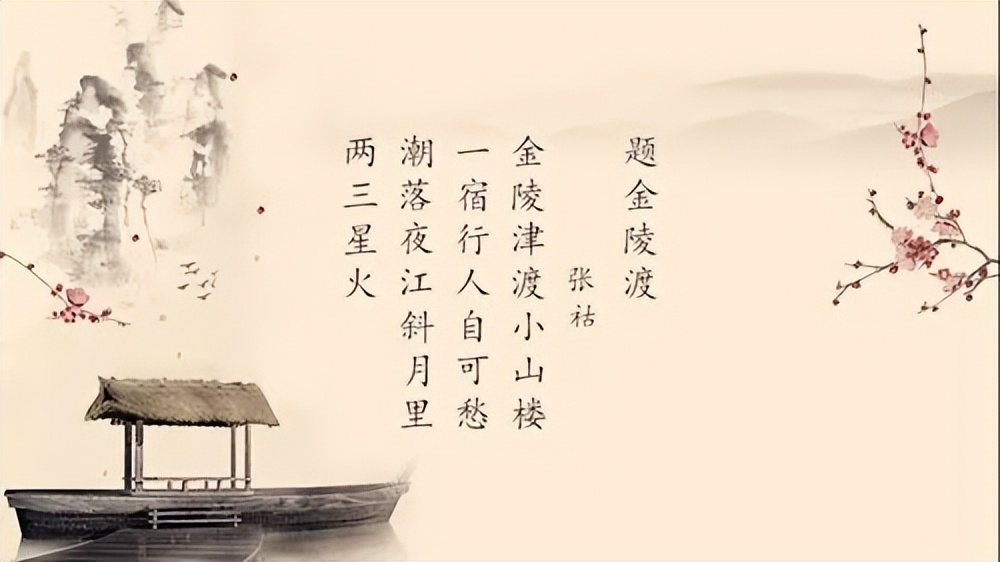 题金陵渡
张祜
金陵津渡小山楼
一宿行人自可愁
潮落夜江斜月里
两三星火